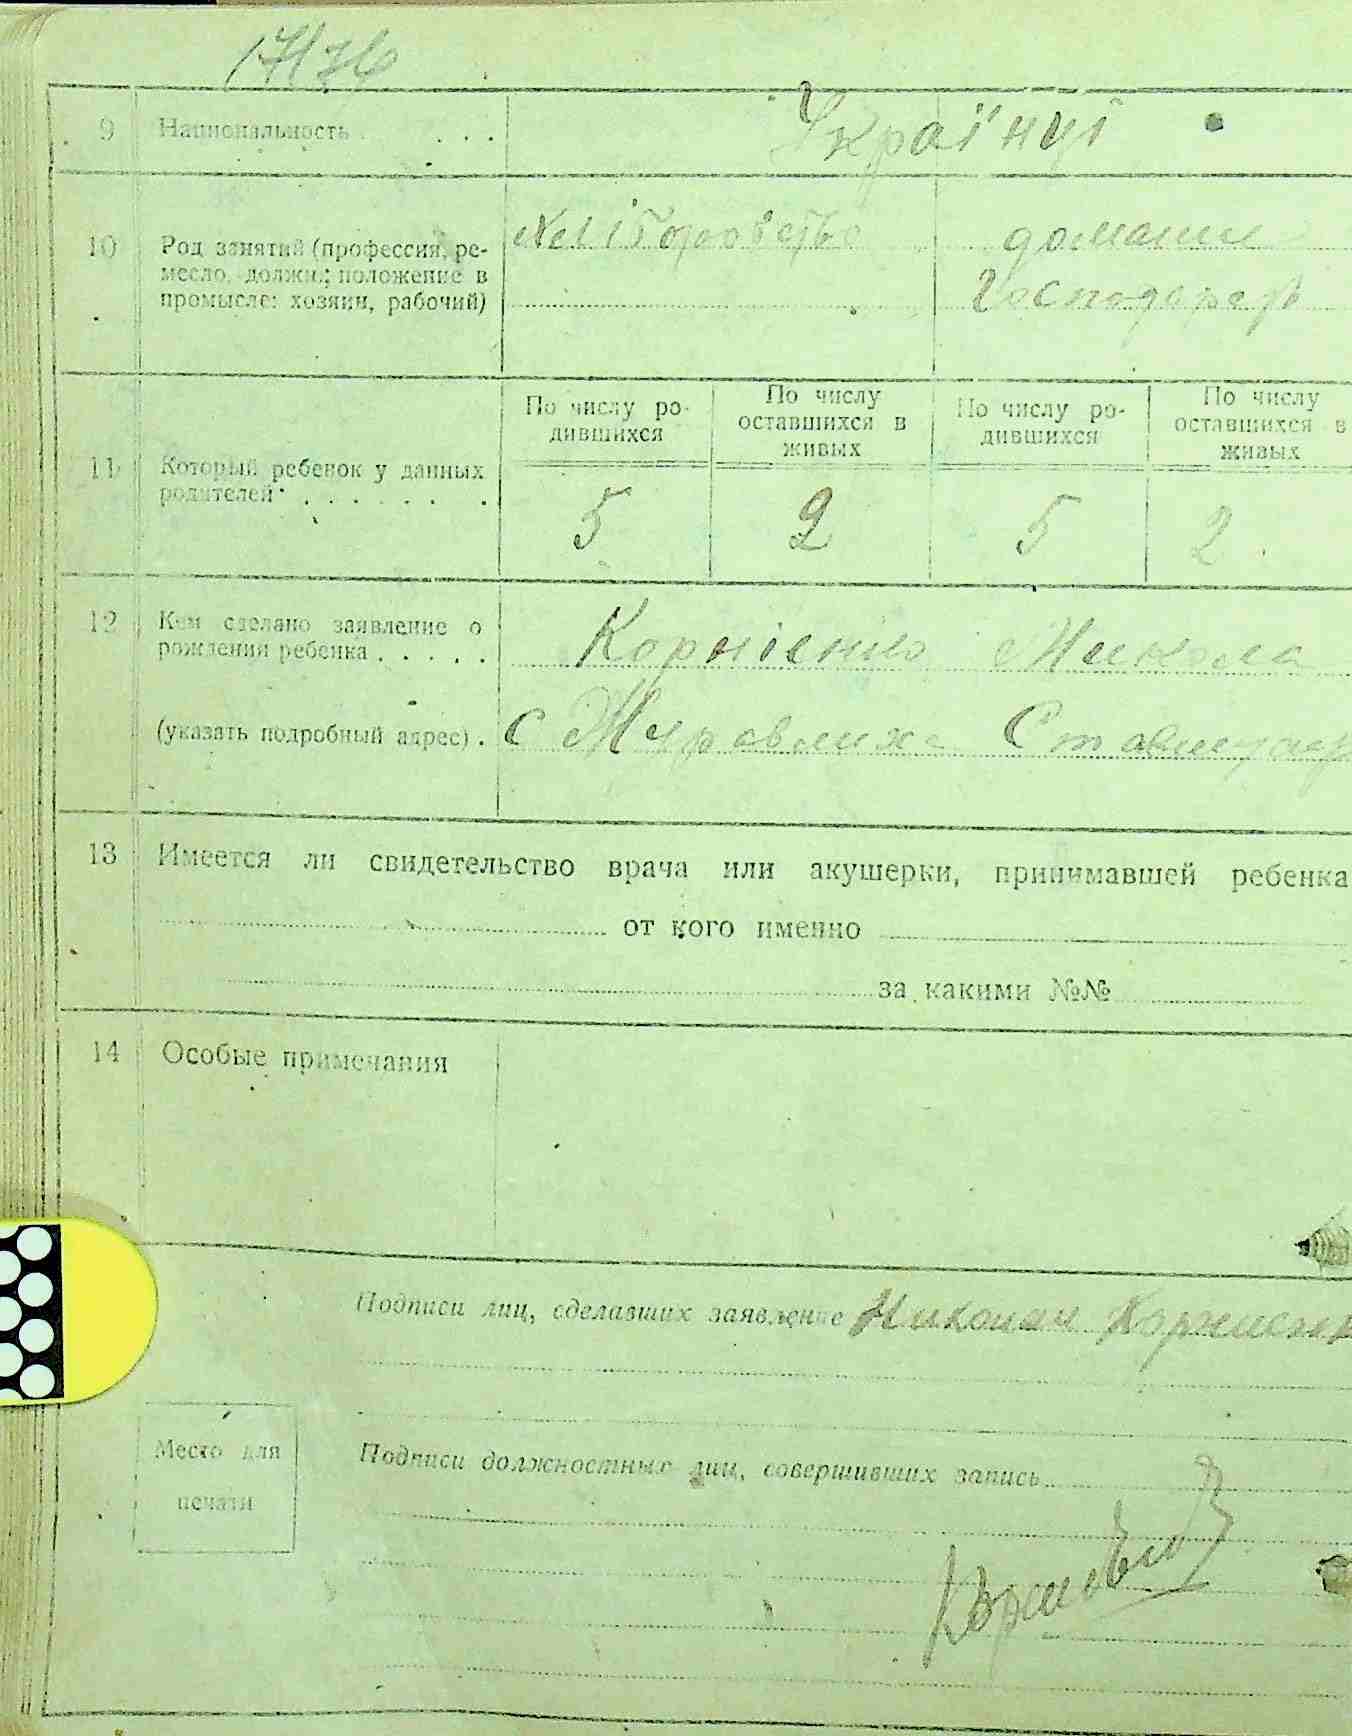 9 Национальность . . . . Українці
10 Род занятий (профессия, ре-
месло, должн.; положение в
промысле: хозяин, рабочий)
Хліборобство домашнє
господарств
11 Который ребенок у данных
родителей . . . . . . .
По числу ро-
дившихся
По числу
оставшихся в
живых
По числу ро-
дившихся
По числу
оставшихся в
живых
5 2 5 2
12 Кем сделано заявление о
рождении ребенка . . . . . Корнієнко Микола
(указать подробный адрес) . с Журавлиха
13 Имеется ли свидетельство врача или акушерки, принимавшей ребенка
от кого именно
за какими №№
14 Особые примечания
Подписи лиц, сделавших заявление Николай Корниенк
Место для
печати
Подписи должностных лиц, совершивших запись